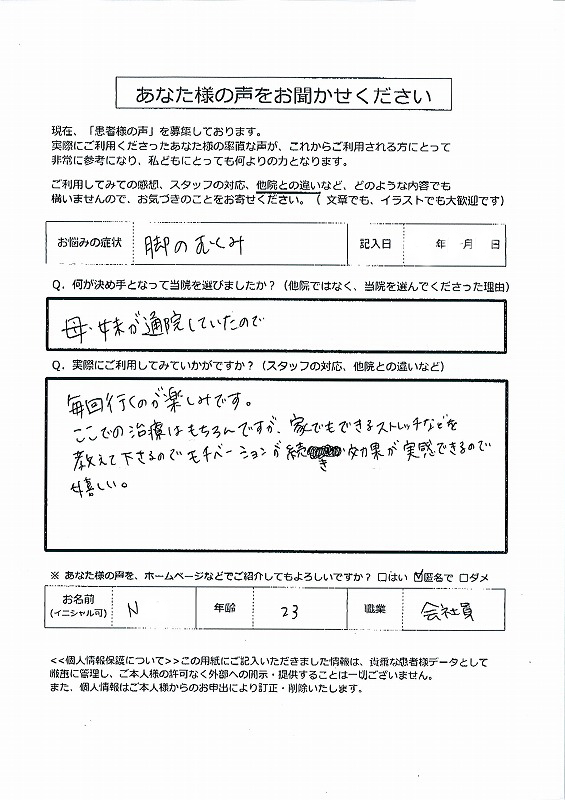 あなた様の声をお聞かせください
現在、「患者様の声」を募集しております。
実際にご利用くださったあなた様の率直な声が、これからご利用される方にとって
非常に参考になり、私どもにとっても何よりの力となります。
ご利用してみての感想、スタッフの対応、他院との違いなど、どのような内容でも
構いませんので、お気づきのことをお寄せください。（ 文章でも、イラストでも大歓迎です）
お悩みの症状 脚のむくみ 記入日 年 月 日
Q．何が決め手となって当院を選びましたか？（他院ではなく、当院を選んでくださった理由）
母・妹が通院していたので
Q．実際にご利用してみていかがですか？（スタッフの対応、他院との違いなど）
毎回行くのが楽しみです。
ここでの治療はもちろんですが、家でもできるストレッチなどを
教えて下さるのでモチベーションが続き効果が実感できるので
嬉しい。
※ あなた様の声を、ホームページなどでご紹介してもよろしいですか？ □はい ☑匿名で □ダメ
お名前 N 年齢 23 職業 会社員
(イニシャル可)
<<個人情報保護について>>この用紙にご記入いただきました情報は、貴重な患者様データとして
厳重に管理し、ご本人様の許可なく外部への開示・提供することは一切ございません。
また、個人情報はご本人様からのお申出により訂正・削除いたします。